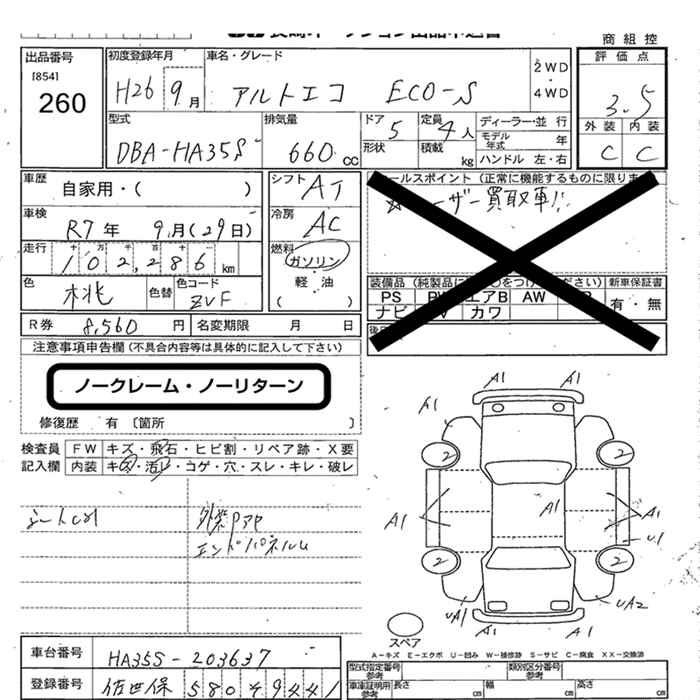 商組控
出品番号
[854]
260
初度登録年月
H26 9月
車名・グレード
アルトエコ ECO-S
2WD
・
4WD
評価点
3.5
外装 内装
C C
型式
DBA-HA35S
排気量
660 cc
ドア 5
形状
定員 4人
積載 kg
ディーラー・並行
モデル年式 年
ハンドル 左・右
車歴
自家用・( )
車検
R7年 9月(29日)
走行
十 万 千 百 十 一
102,286 km
色
桃
色替
色コード
ZVF
シフト
AT
冷房
AC
燃料
ガソリン
軽油
( )
セールスポイント(正常に機能するものに限ります
ーザー買取車!!
装備品(純製品に をつけ ださい)
新車保証書
PS エアB AW
ナビ カワ
有・無
R券 8,560円
名変期限 月 日
注意事項申告欄(不具合内容等は具体的に記入して下さい)
ノークレーム・ノーリターン
修復歴 有 〔箇所 〕
検査員
記入欄
FW キズ・飛石・ヒビ割・リペア跡・X要
内装 キズ・汚レ・コゲ・穴・スレ・キレ・破レ
外装PアP
A1 A1
A1 A1
2 2
A1 A1 A1
U1
2 2
UA1 UA2
A1 A1
スペア
A-キズ E-エクボ U-凹み W-補修跡 S-サビ C-腐食 XX-交換済
車台番号
HA35S-203637
登録番号
佐世保 580 4941
型式指定番号
参考
類別区分番号
参考
車庫証明用
参考
長さ cm
幅 cm
高さ cm